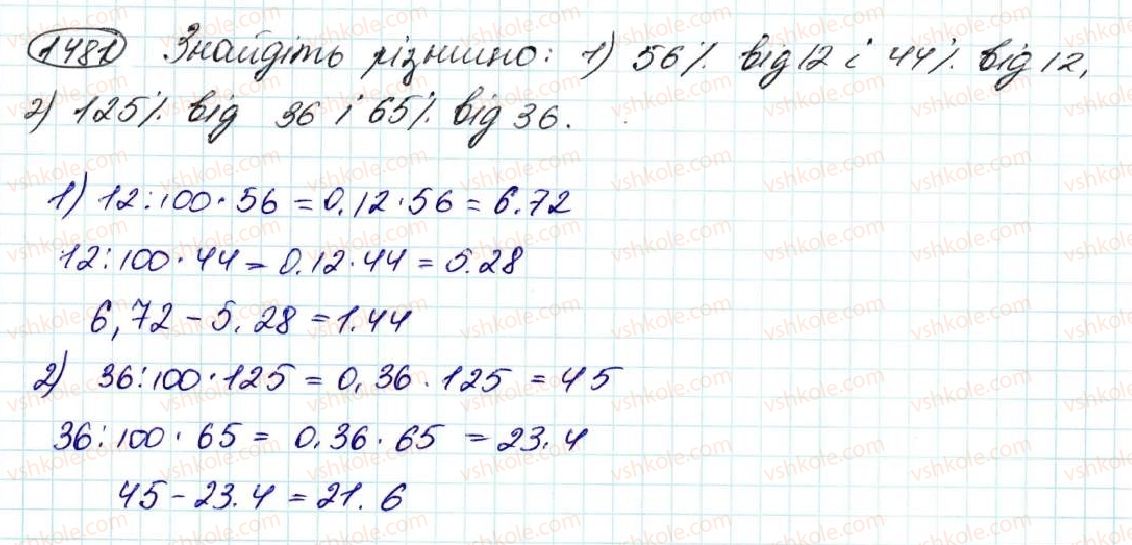 1481 Знайдіть різницю: 1) 56% від 12 і 44% від 12,
2) 125% від 36 і 65% від 36.
1) 12:100·56 = 0.12·56 = 6.72
12:100·44 = 0.12·44 = 5.28
6,72 - 5.28 = 1.44
2) 36:100·125 = 0,36·125 = 45
36:100·65 = 0.36·65 = 23.4
45 - 23.4 = 21.6